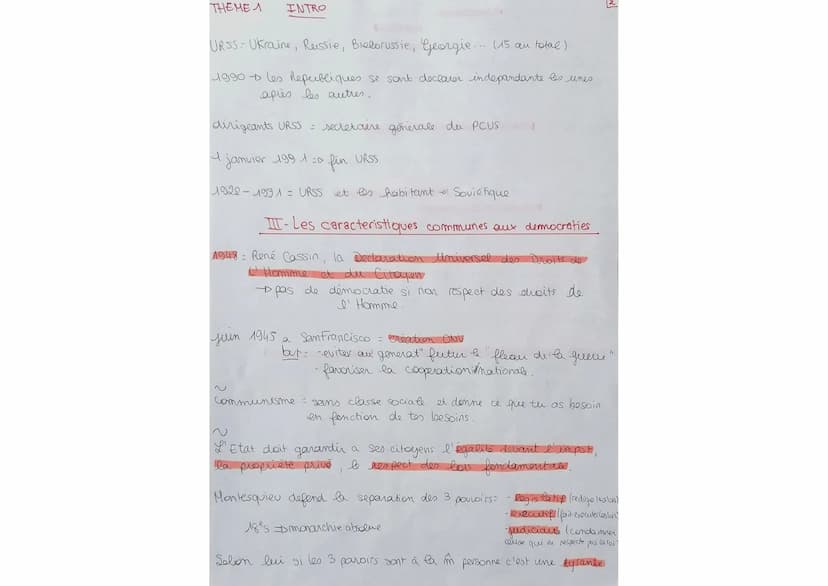 THEME 1 INTRO
2
URSS = Ukraine, Russie, Bielorussie, Georgie... (15 au total)
1990 → Les Republiques se sont declarer independante les unes
après les autres.
dirigeants URSS = secretaire générale du PCUS
1 janvier 1991 => fin URSS
1922-1991 = URSS et les habitant = Sovietique
III - Les caracteristiques communes aux democraties
1948 : René Cassin, la Declaration Universel des Droits de
L'Homme et du Citoyen
→ pas de démocratie si non respect des droits de
l'Homme
juin 1945 a SanFrancisco = creation ONU
but = - eviter aux generat° futur le "fleau de la guerre"
- favoriser la cooperation nationals.
~
Communisme = sans classe sociale et donne ce que tu as besoin
en fonction de tes besoins.
~
L'Etat doit garandir a ses citoyens l'égalité devant l'impot,
la propriété privé, le respect des lois fondamentale.
Montesquieu defend la separation des 3 pouvoirs: - legislatif (redige les lois)
- executif (fait executer les lois)
18e s => monarchie absolue
- judiciaire (condamner
celui qui ne respecte pas la loi
Selon lui si les 3 pouvoirs sont à la m̂ personne c'est une tyrannie